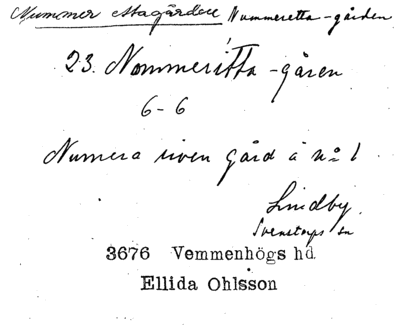 Nummer ettagården Nummeretta-gården
23. Nommerítta-gåren
6-6
Numera riven gård å nº 1
Lindby.
Svenstorps sn
3676 Vemmenhögs hd
Ellida Ohlsson